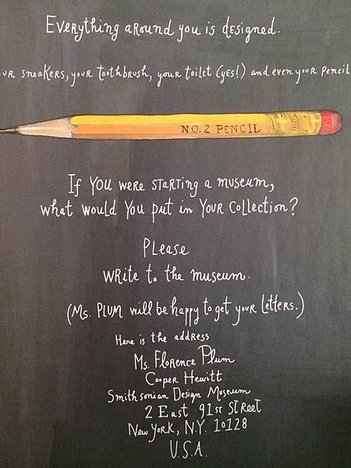 Everything around you is designed.
your sneakers, your toothbrush, your toilet (yes!) and even your pencil
NO. 2 PENCIL
If YOU were starting a museum,
what would You put in YOUR collection?
Please
write to the museum.
(Ms. PLUM will be happy to get your letters.)
Here is the address
Ms. Florence Plum
Cooper Hewitt
Smithsonian Design Museum
2 East 91st Street
New York, NY. 10128
U.S.A.